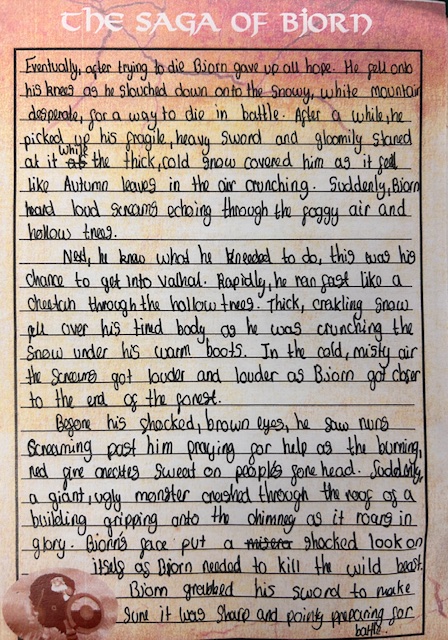 THE SAGA OF BJORN
Eventually, after trying to die Bjorn gave up all hope. He fell onto
his knees as he slouched down onto the snowy, white mountain
desperate, for a way to die in battle. After a while, he
picked up his fragile, heavy sword and gloomily stared
at it while the thick, cold snow covered him as it fell
like Autumn leaves in the air crunching. Suddenly, Bjorn
heard loud screams echoing through the foggy air and
hollow trees.
Next, he knew what he kneeded to do, this was his
chance to get into valhal. Rapidly, he ran fast like a
cheetah through the hollow trees. Thick, crakling snow
fell over his tired body as he was crunching the
snow under his warm boots. In the cold, misty air
the screams got louder and louder as Bjorn got closer
to the end of the forest.
Before his shocked, brown eyes, he saw nuns
screaming past him praying for help as the burning,
red fire creates sweat on people's fore head. Suddenly,
a giant, ugly monster crashed through the roof of a
building gripping onto the chimney as it roars in
glory. Bjorns face put a shocked look on
itself as Bjorn needed to kill the wild beast.
Bjorn grabbed his sword to make
sure it was sharp and pointy preparing for
battle.